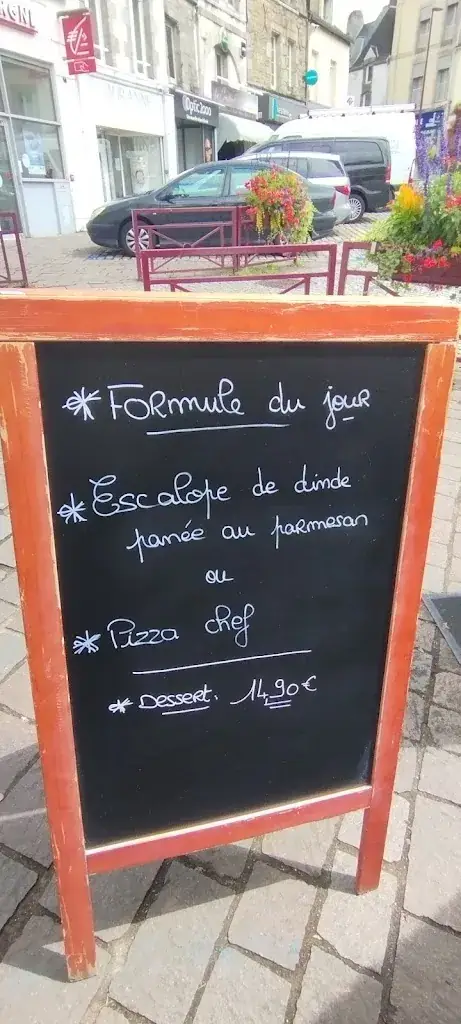 Optic 2000
* Formule du jour
* Escalope de dinde
panée au parmesan
ou
* Pizza chef
* Dessert. 14,90€